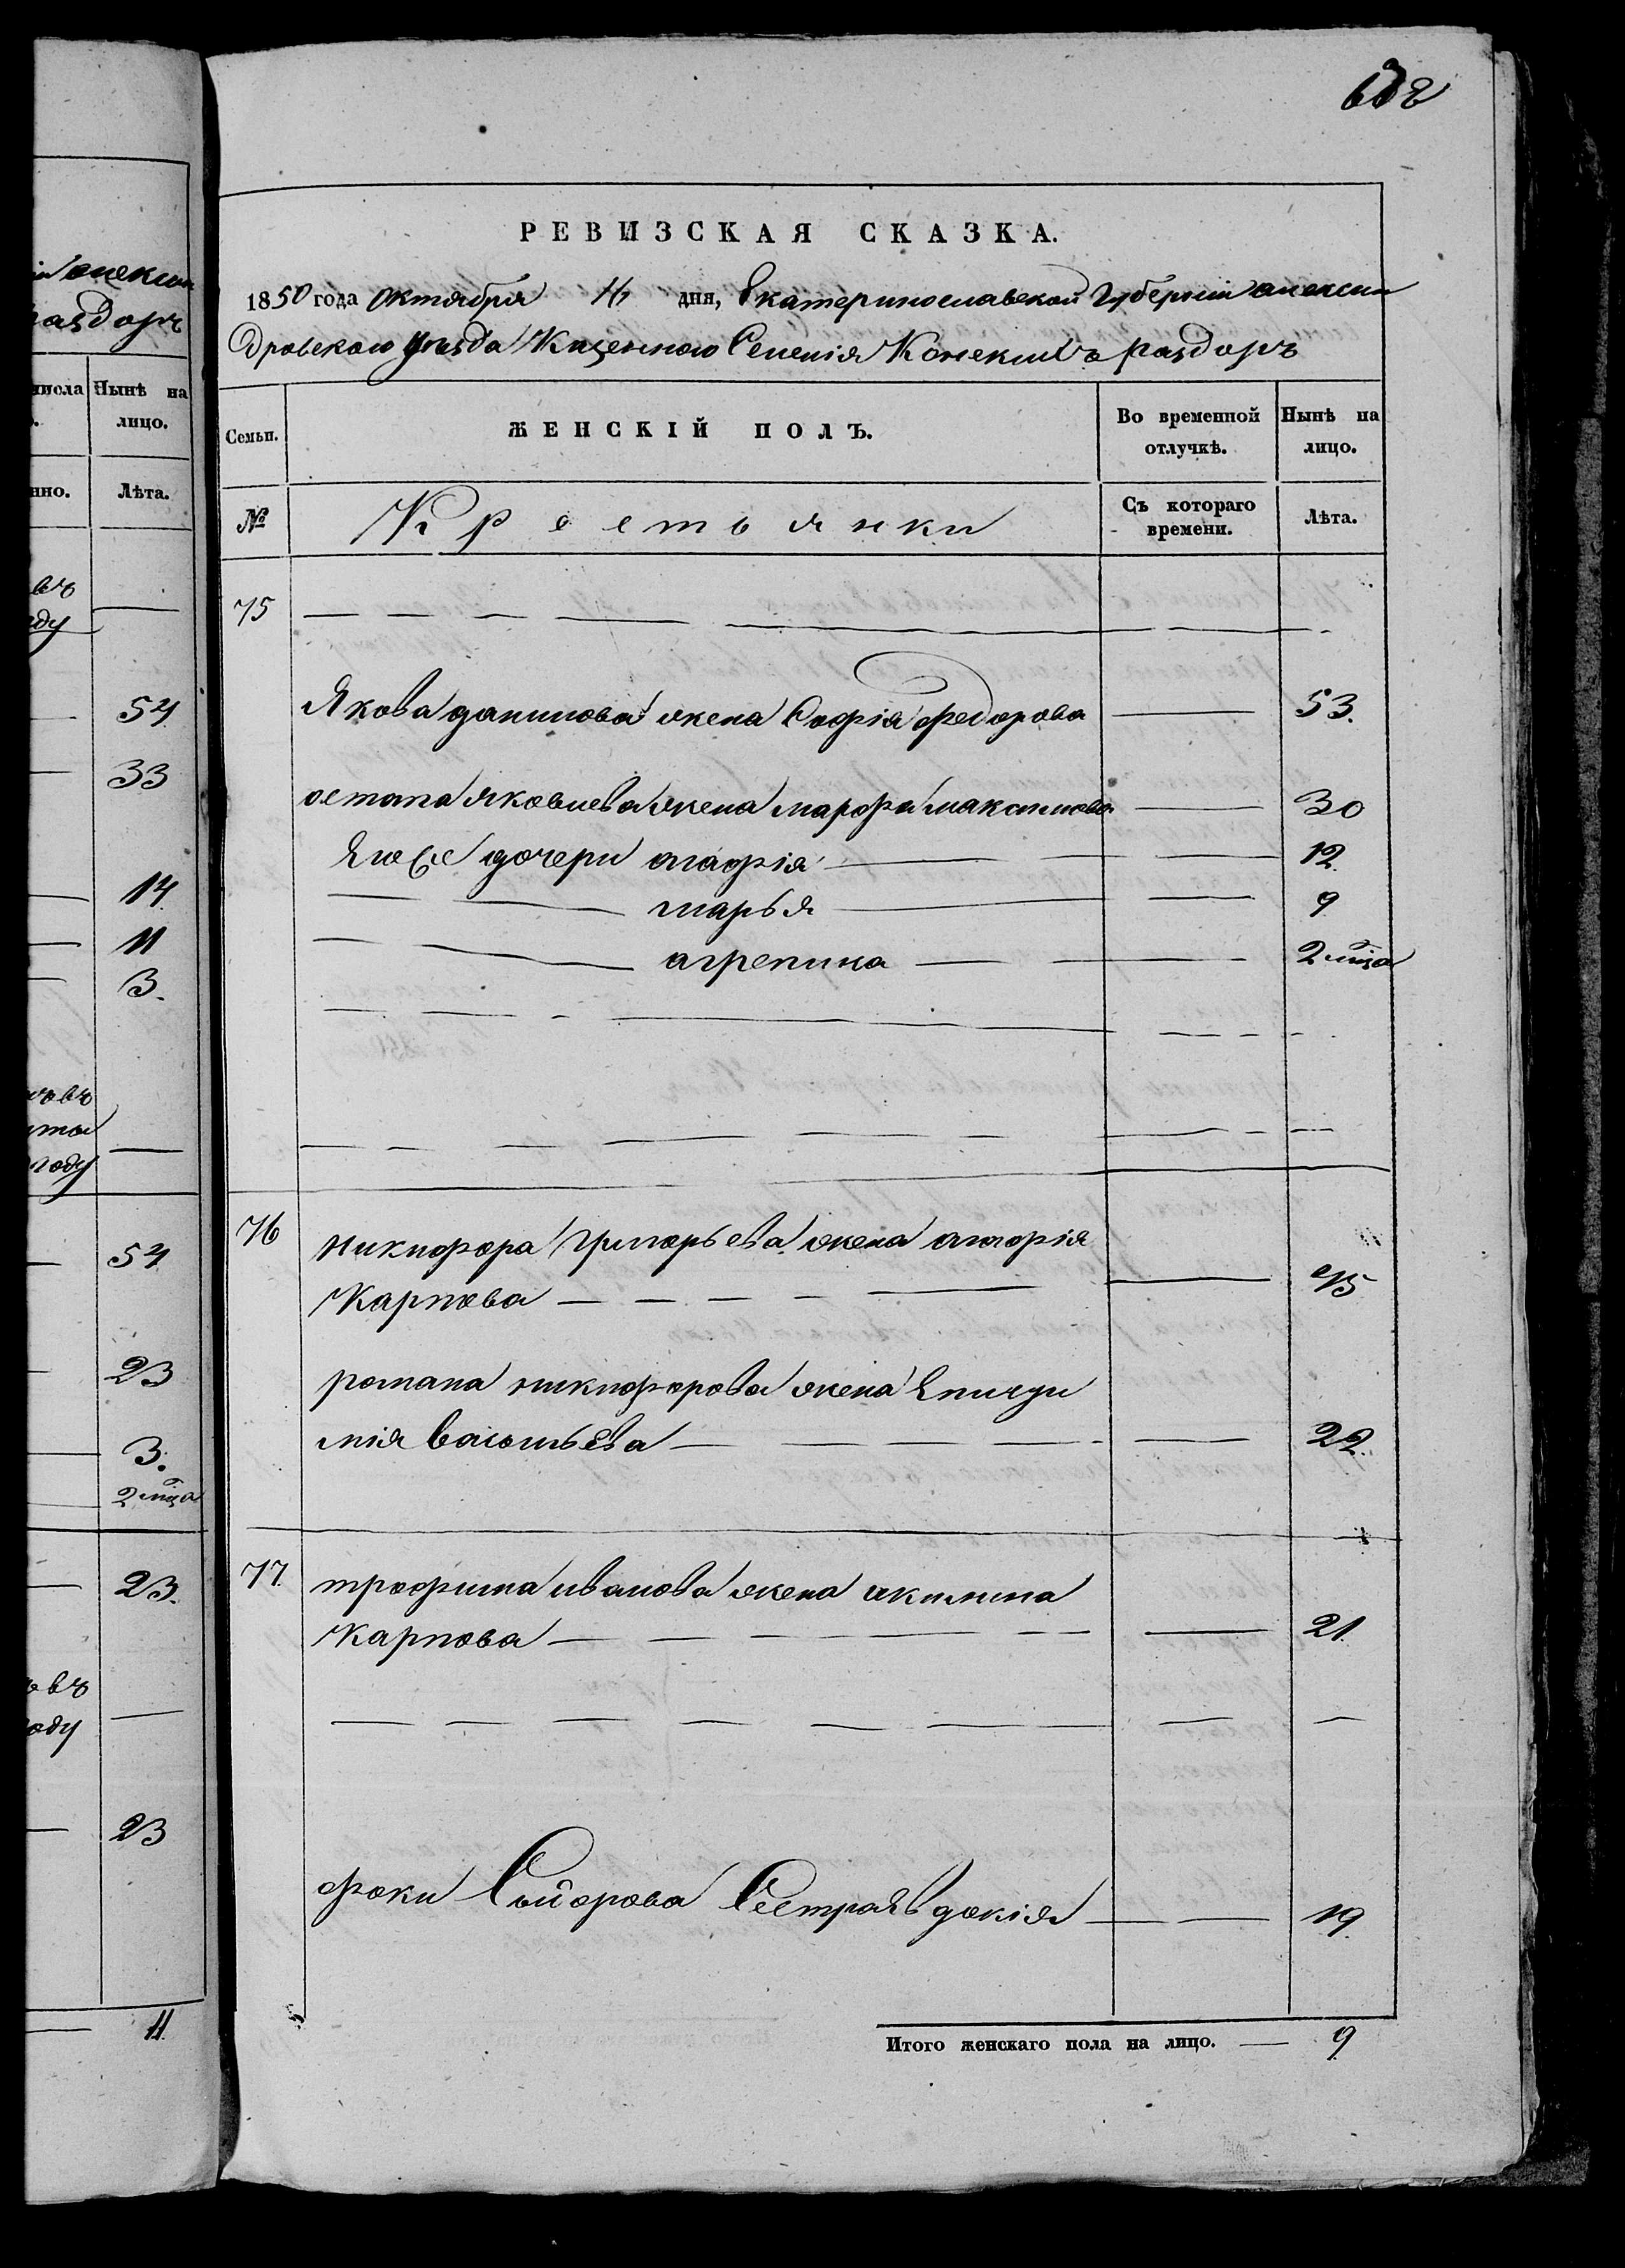 алексан
раздоръ
числа Нынѣ на
лицо.
нно. Лѣта.
въ
оду
54
33
14
11
3.
оду
54
23
3.
2 мца
23.
въ
оду
23
11
РЕВИЗСКАЯ СКАЗКА.
1850 года октября дня, Екатеринославской Губерніи алексан
дровскаго уѣзда Казенного Селенія Конскихъ раздоръ
Семьи. ЖЕНСКІЙ ПОЛЪ. Во временной отлучкѣ. Нынѣ на лицо.
№ Крестьянки Съ котораго времени. Лѣта.
75
Якова данилова жена Софія федорова 53.
остапа яковлева жена марфа максимова 30
Его же дочери агафія 12
марья 9
агрепина 2 мца
76 никифора григорьева жена агафія
Карпова 45
романа никифорова жена Епиѵди
мія васильева 22.
77 трофима иванова жена акилина
Карпова 21.
фоки Сидорова Сестра Евдокія 19
Итого женскаго пола на лицо. 9